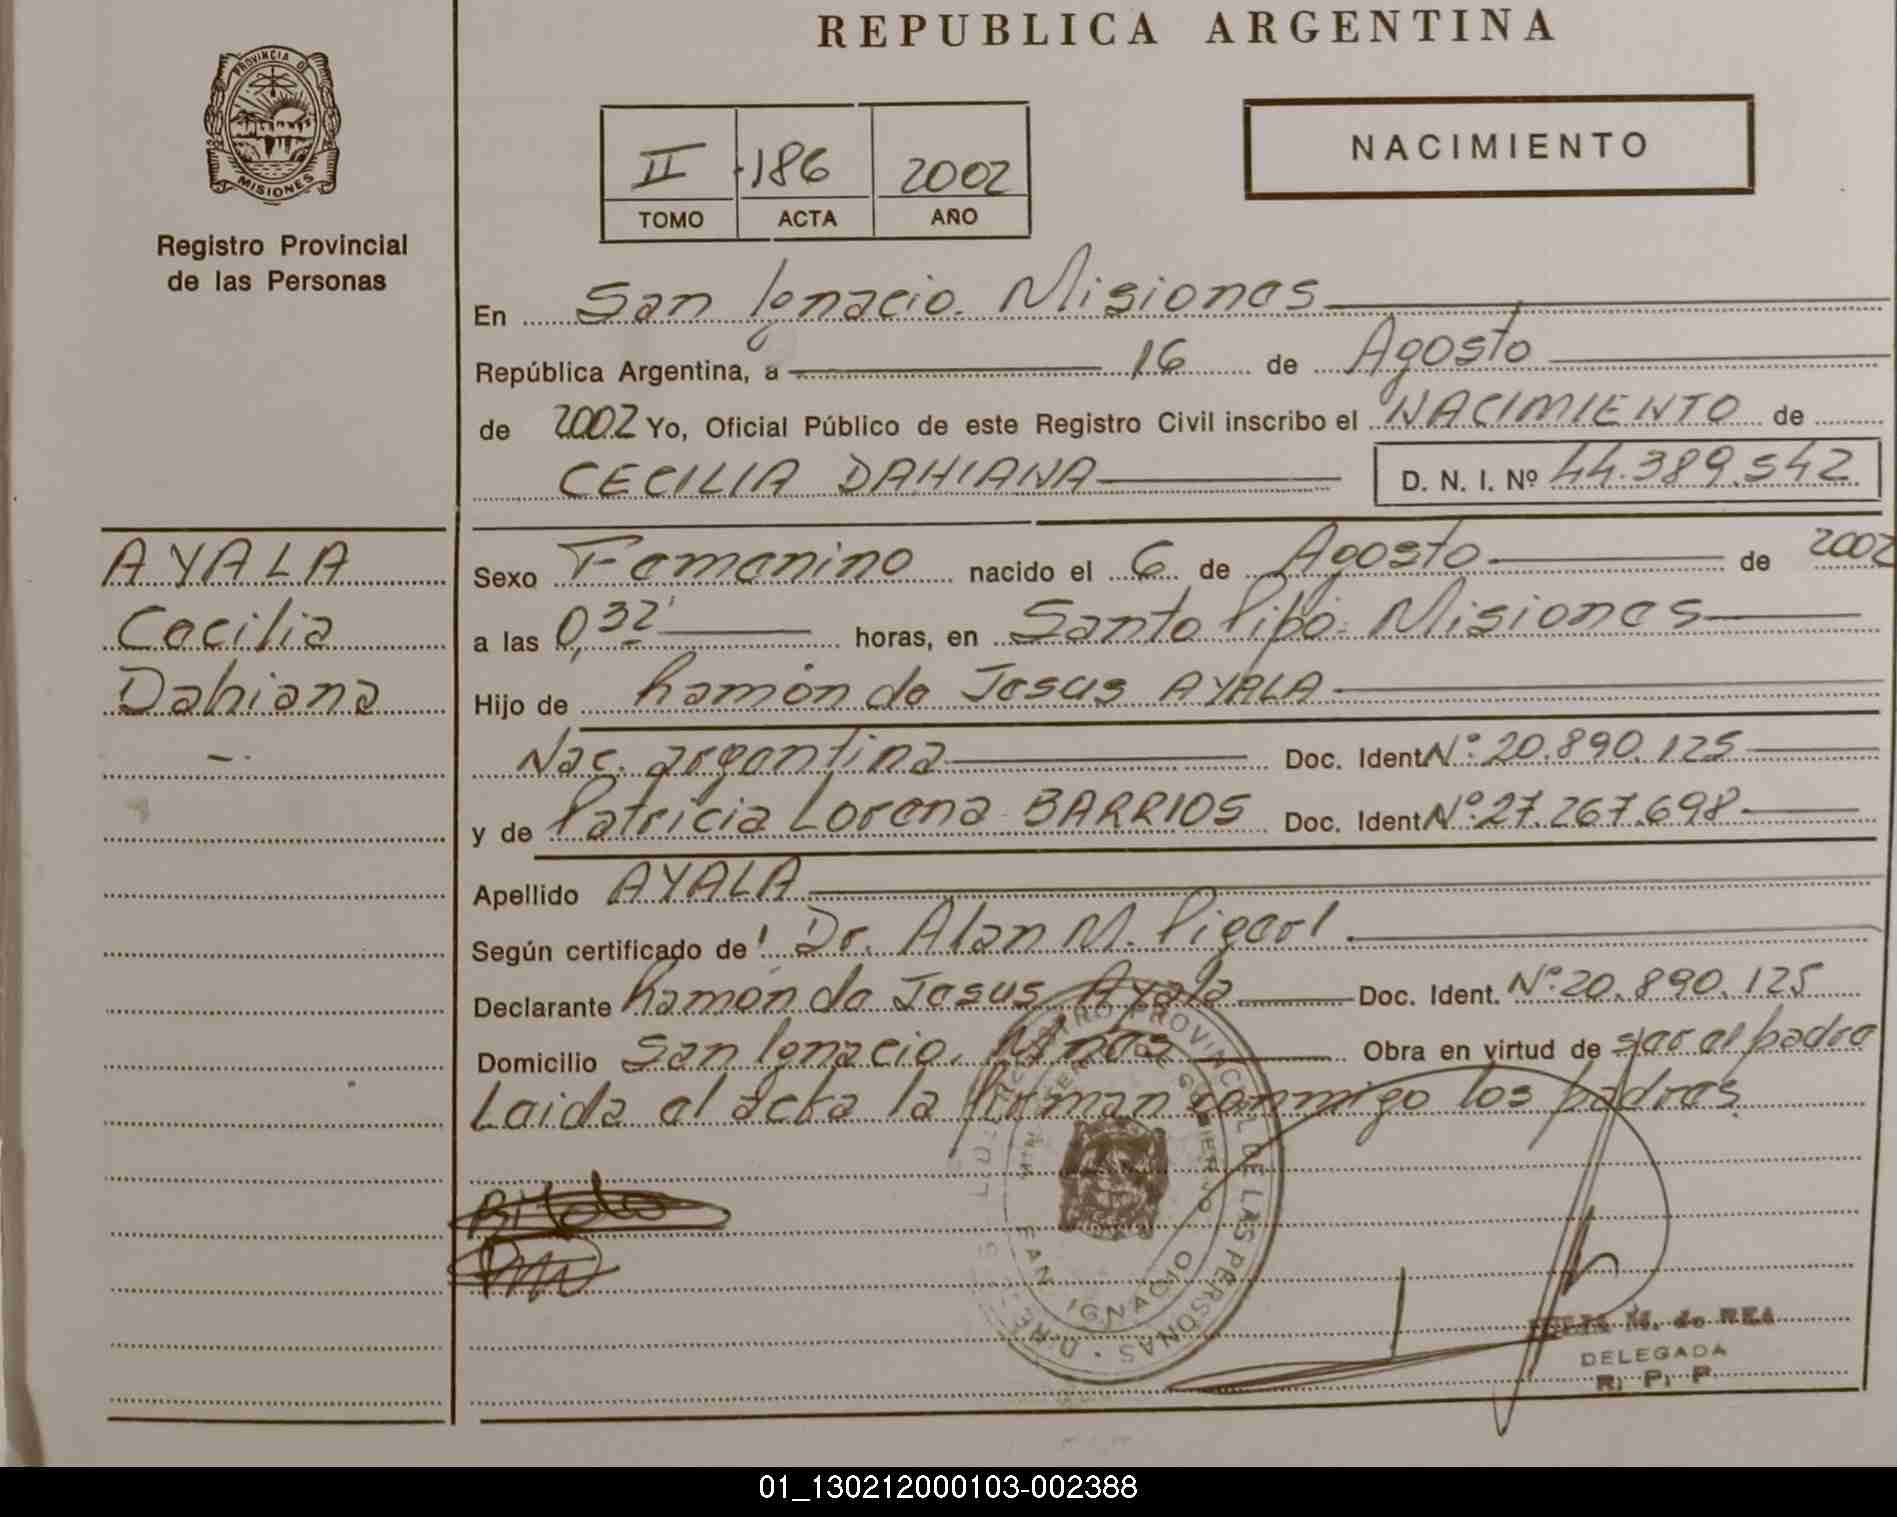 REPUBLICA ARGENTINA
PROVINCIA DE
MISIONES
Registro Provincial
de las Personas
II 186 2002
TOMO ACTA AÑO
NACIMIENTO
En San Ignacio. Misiones
República Argentina, a 16 de Agosto
de 2002 Yo, Oficial Público de este Registro Civil inscribo el NACIMIENTO de
CECILIA DAHIANA D. N. I. Nº 44.389.542
AYALA
Cecilia
Dahiana
Sexo Femenino nacido el 6 de Agosto de 2002
a las 0,32' horas, en Santo Pipó. Misiones
Hijo de Ramón de Jesus AYALA
Nac. argentina Doc. Ident Nº: 20.890.125
y de Patricia Lorena BARRIOS Doc. Ident Nº: 27.267.698
Apellido AYALA
Según certificado de: Dr. Alan M.
Declarante Ramón de Jesus Ayala Doc. Ident. Nº: 20.890.125
Domicilio San Ignacio, Mnes Obra en virtud de ser el padre
Leida el acta la firman conmigo los padres.
REGISTRO PROVINCIAL DE LAS PERSONAS
MINISTERIO DE GOBIERNO
SAN IGNACIO
M. de REA
DELEGADA
R. P. P.
01_130212000103-002388